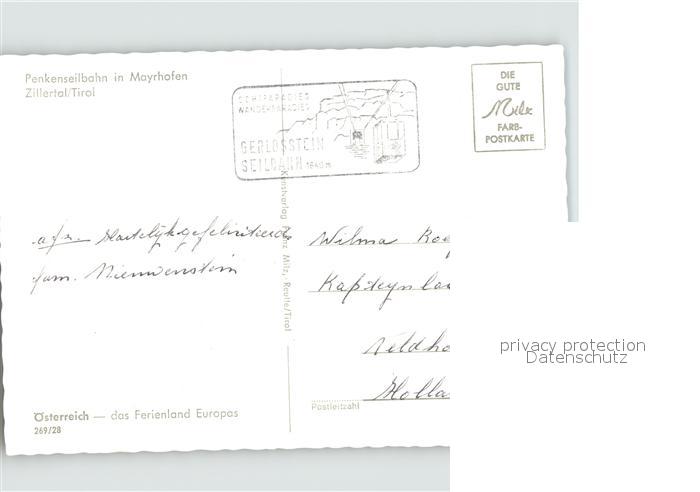 Penkenseilbahn in Mayrhofen
Zillertal/Tirol
SCHIPARADIES
WANDERPARADIES
GERLOSSTEIN
SEILBAHN 1640 m
DIE
GUTE
Milz
FARB-
POSTKARTE
Kunstverlag Franz Milz, Reutte/Tirol
afz. Hartelijk gefeliciteerd
fam. Nieuwenstein
Wilma
Kapteynlaa
Veldho
Holla
Postleitzahl
Österreich — das Ferienland Europas
269/28
privacy protection
Datenschutz